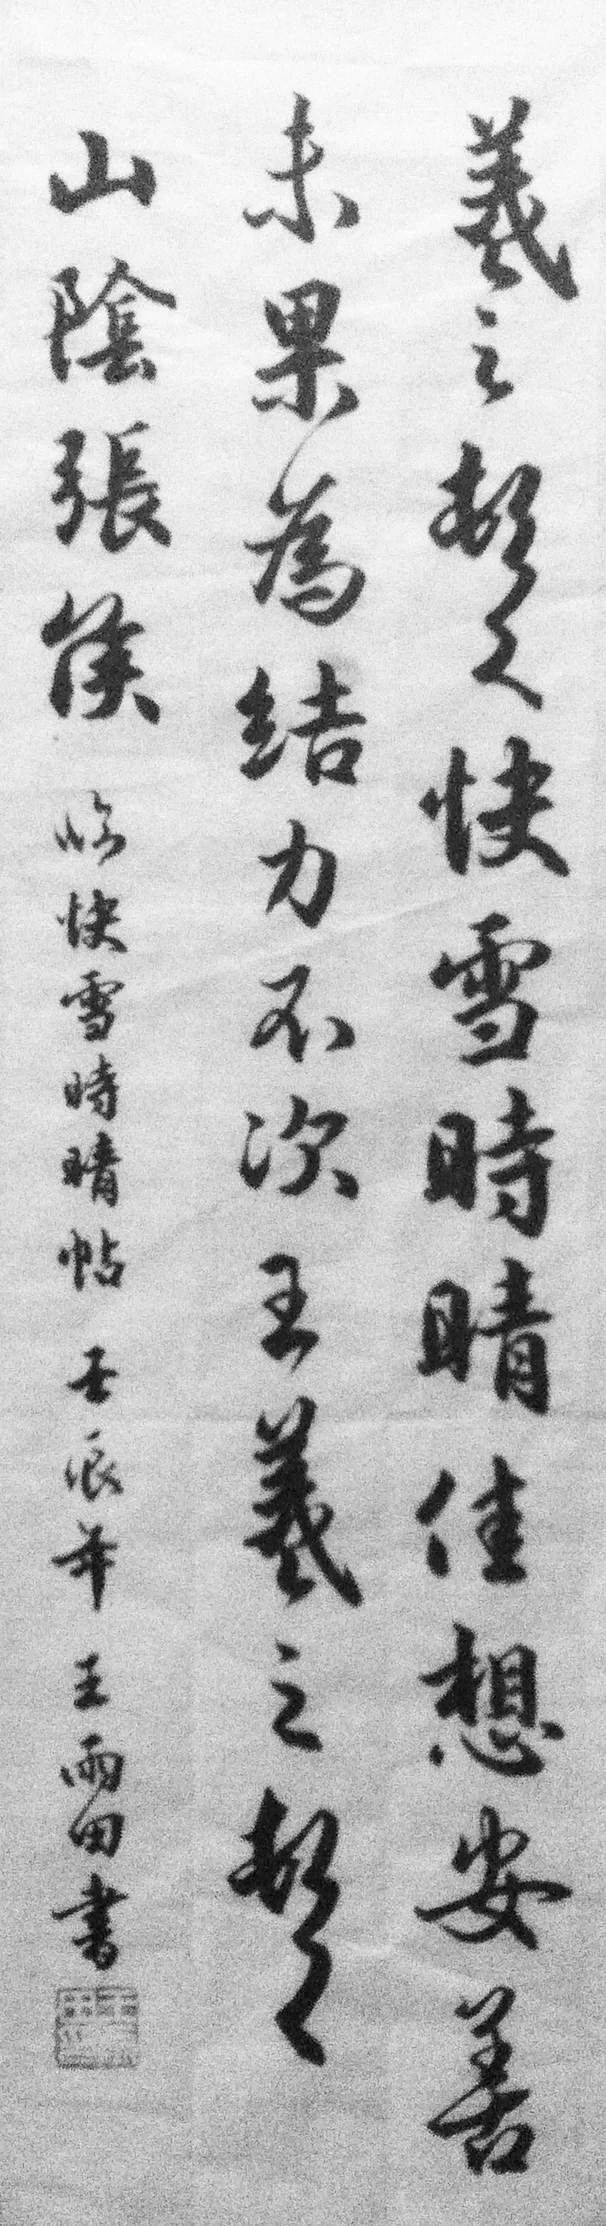 羲之頓首快雪時晴佳想安善
未果為結力不次王羲之頓首
山陰張侯 臨快雪時晴帖 壬辰年 王雨田書